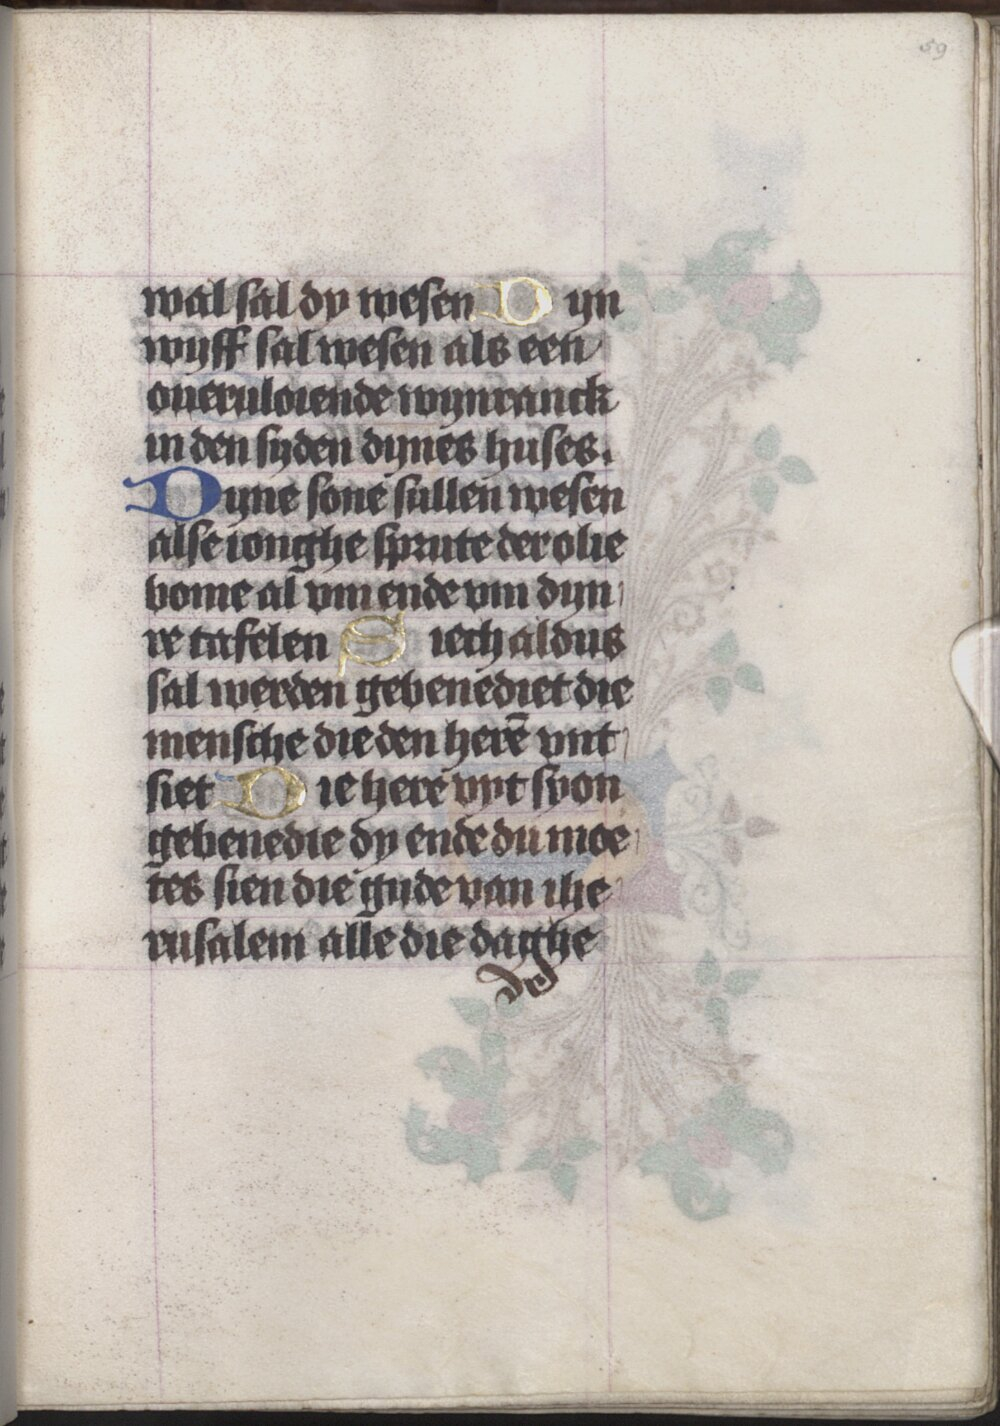 59
wal sal dy wesen Dijn
wijff sal wesen als een
oueruloiende wijnranck
in den syden dijnes huses.
Dijne sone sullen wesen
alse ionghe sprute der olie
bome al vm ende vm dijn
re tafelen Siech aldus
sal werden gebenediet die
mensche die den herē vnt
siet Die here vyt syon
gebenedie dy ende du moe
tes sien die gude van ihe
rusalem alle die daghe
des